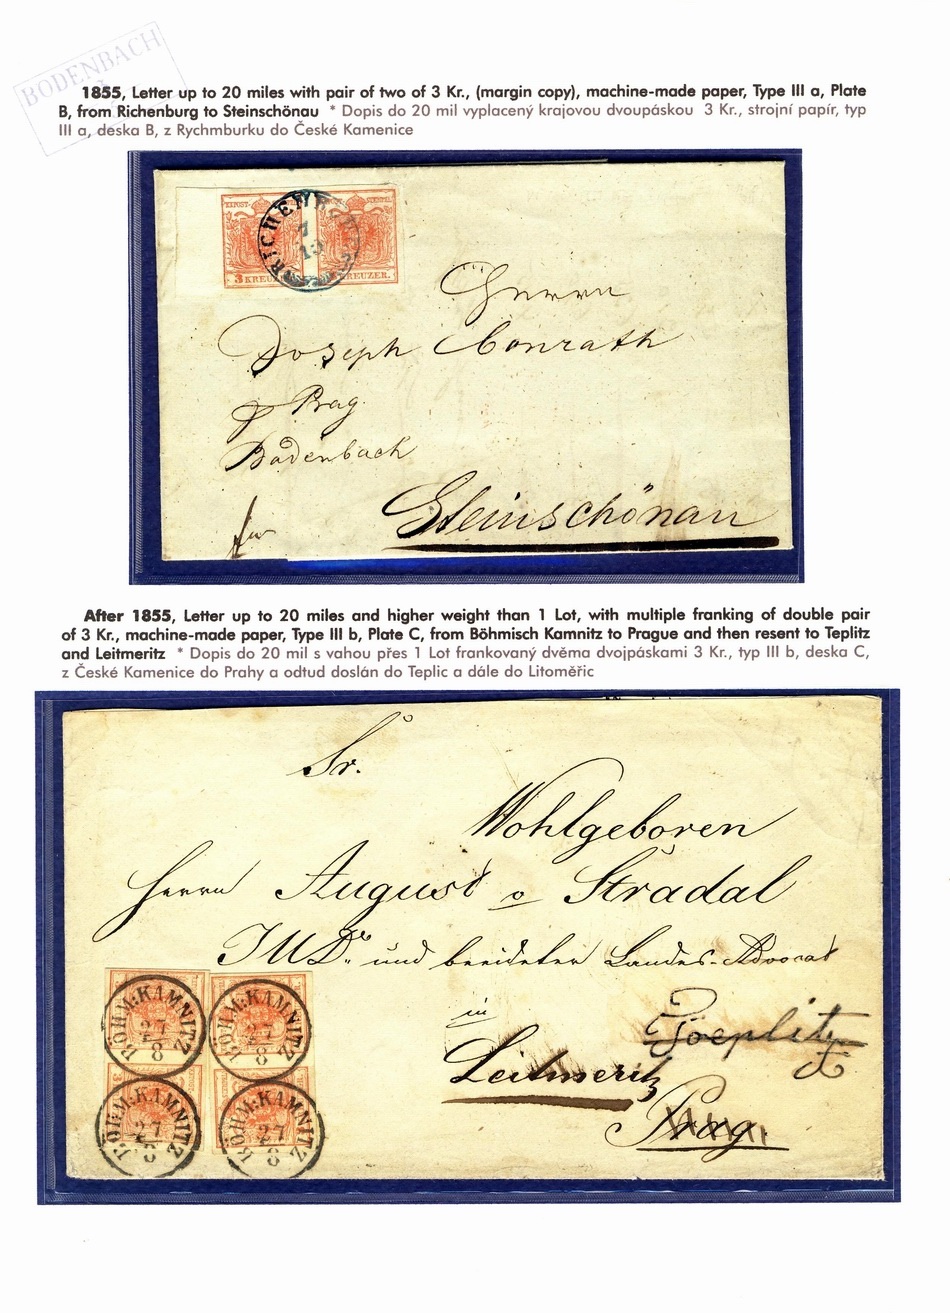 BODENBACH
1855, Letter up to 20 miles with pair of two of 3 Kr., (margin copy), machine-made paper, Type III a, Plate
B, from Richenburg to Steinschönau * Dopis do 20 mil vyplacený krajovou dvoupáskou 3 Kr., strojní papír, typ
III a, deska B, z Rychmburku do České Kamenice
3 KREUZER.
Herrn
Joseph Conrath
Prag
Bodenbach
Steinschönau
After 1855, Letter up to 20 miles and higher weight than 1 Lot, with multiple franking of double pair
of 3 Kr., machine-made paper, Type III b, Plate C, from Böhmisch Kamnitz to Prague and then resent to Teplitz
and Leitmeritz * Dopis do 20 mil s vahou přes 1 Lot frankovaný dvěma dvojpáskami 3 Kr., typ III b, deska C,
z České Kamenice do Prahy a odtud doslán do Teplic a dále do Litoměřic
Sr.
Wohlgeboren
Herrn August v Stradal
JUDr. und beeideter Landes-Advocat
in
Leitmeritz
Prag
BÖHM:KAMNITZ
27
8
BÖHM:KAMNITZ
27
8
BÖHM:KAMNITZ
27
8
BÖHM:KAMNITZ
27
8